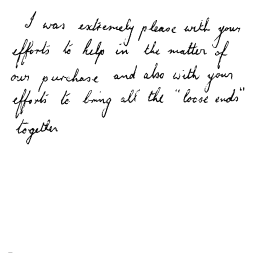 I was extremely please with your
efforts to help in the matter of
our purchase and also with your
efforts to bring all the "loose ends"
together